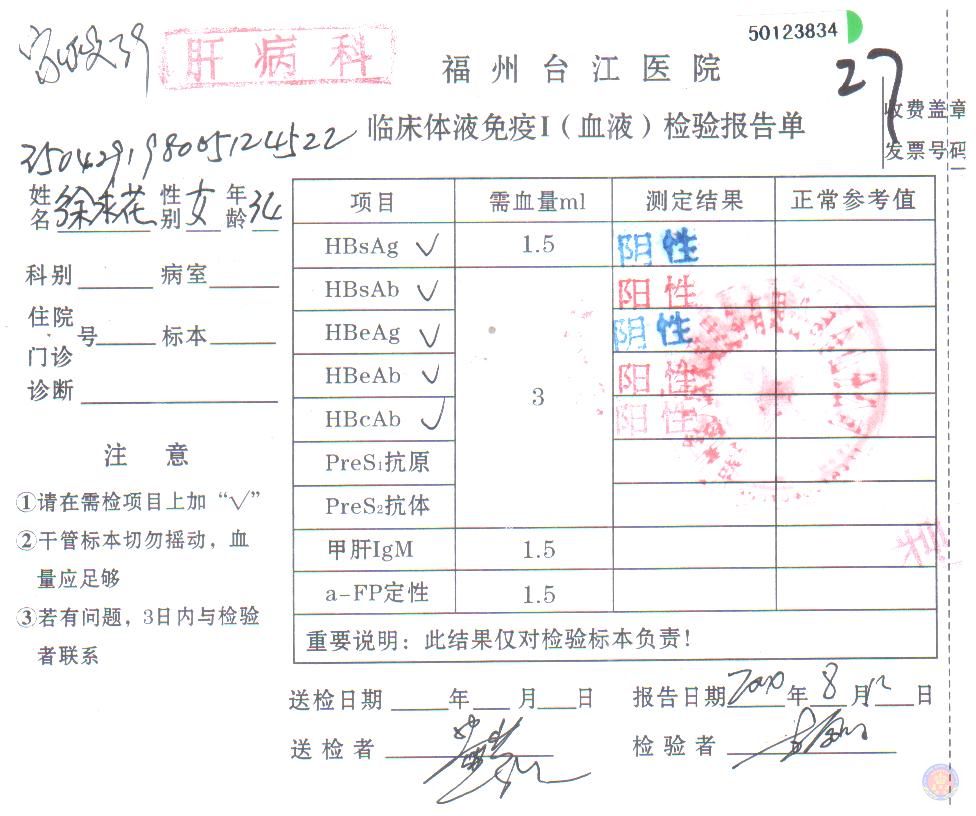 肝病科
50123834
27
福州台江医院
收费盖章
临床体液免疫I（血液）检验报告单
发票号码
350429198005124522
姓名 徐 花 性别 女 年龄
科别 病室
住院
门诊 号 标本
诊断
注意
①请在需检项目上加“√”
②干管标本切勿摇动，血
量应足够
③若有问题，3日内与检验
者联系
项目 需血量ml 测定结果 正常参考值
HBsAg √ 1.5 阴性
HBsAb √ 阳性
HBeAg √ 阴性
HBeAb √ 3 阳性
HBcAb √ 阳性
PreS₁抗原
PreS₂抗体
甲肝IgM 1.5
a-FP定性 1.5
重要说明：此结果仅对检验标本负责！
送检日期 年 月 日 报告日期 年 8 月 12 日
送检者 检验者